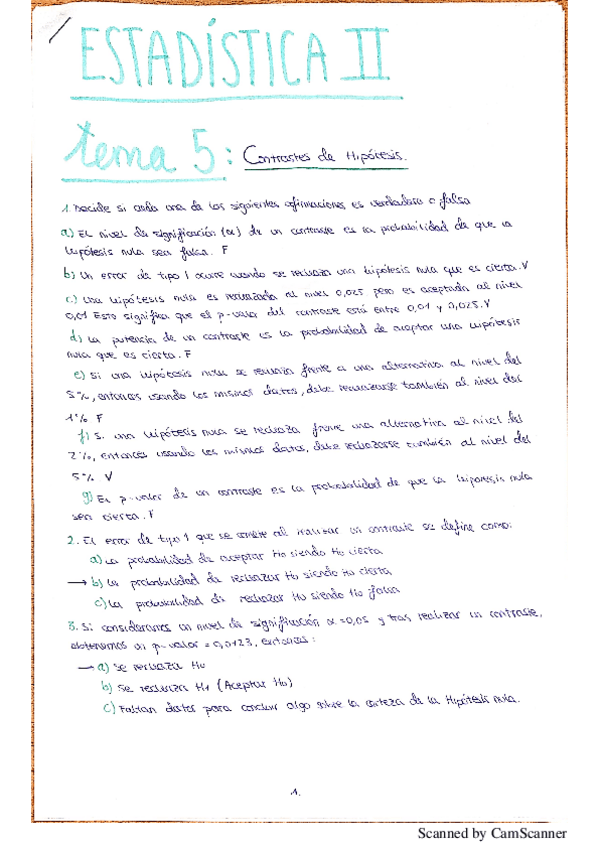 ESTADÍSTICA II
tema 5: Contrastes de Hipótesis.
1. Decide si cada una de las siguientes afirmaciones es verdadera o falsa
a) El nivel de significación (α) de un contraste es la probabilidad de que la
hipótesis nula sea falsa. F
b) Un error de tipo 1 ocurre cuando se rechaza una hipótesis nula que es cierta. V
c) Una hipótesis nula es rechazada al nivel 0,025 pero es aceptada al nivel
0,01 Esto significa que el p-valor del contraste está entre 0,01 y 0,025. V
d) La potencia de un contraste es la probabilidad de aceptar una hipótesis
nula que es cierta. F
e) Si una hipótesis nula se rechaza frente a una alternativa al nivel del
5%, entonces usando los mismos datos, debe rechazarse también al nivel del
1% F
f) Si una hipótesis nula se rechaza frente una alternativa al nivel del
2%, entonces usando los mismos datos, debe rechazarse también al nivel del
5% V
g) El p-valor de un contraste es la probabilidad de que la hipótesis nula
sea cierta. F
2. El error de tipo 1 que se comete al realizar un contraste se define como:
a) La probabilidad de aceptar Ho siendo Ho cierta
→ b) La probabilidad de rechazar Ho siendo Ho cierta
c) La probabilidad de rechazar Ho siendo Ho falsa
3. Si consideramos un nivel de significación α=0,05 y tras realizar un contraste,
obtenemos un p-valor = 0,0123, entonces:
→ a) Se rechaza Ho
b) Se rechaza H1 (Aceptar Ho)
c) Faltan datos para concluir algo sobre la certeza de la Hipótesis nula.
1.
Scanned by CamScanner